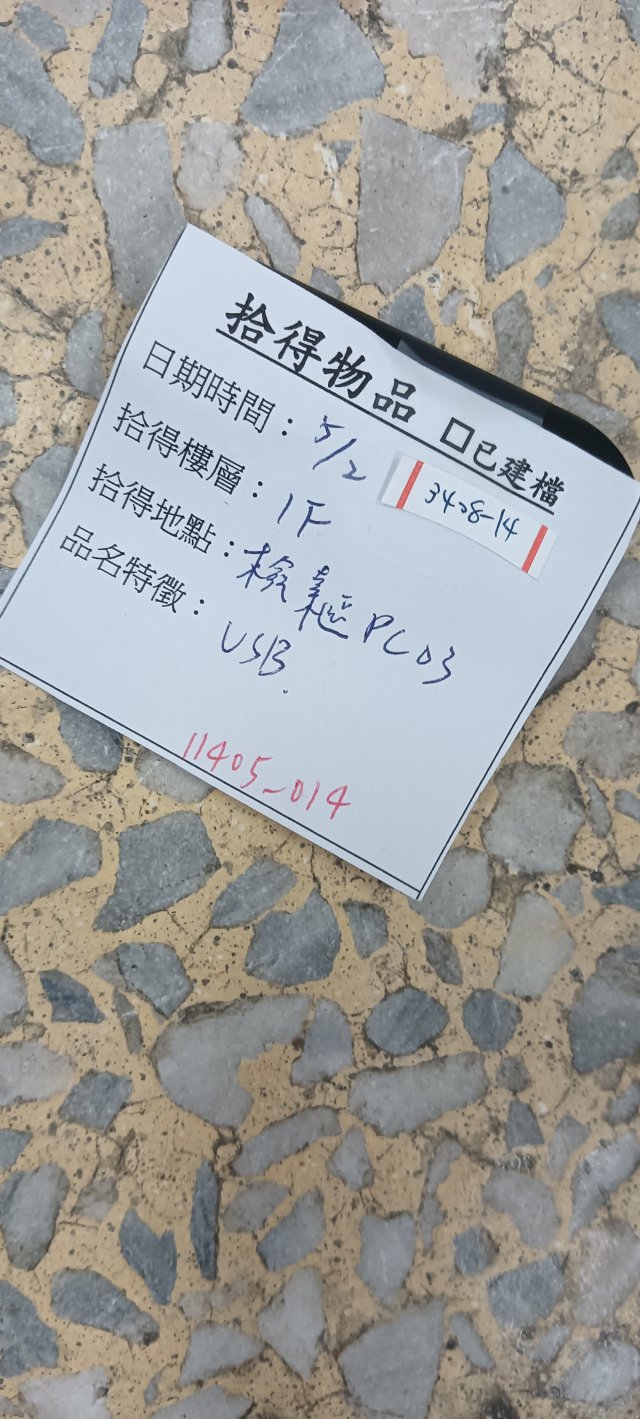 拾得物品 □已建檔
日期時間：5/2
34-8-14
拾得樓層：1F
拾得地點：檢索區 PC03
品名特徵：USB.
11405-014